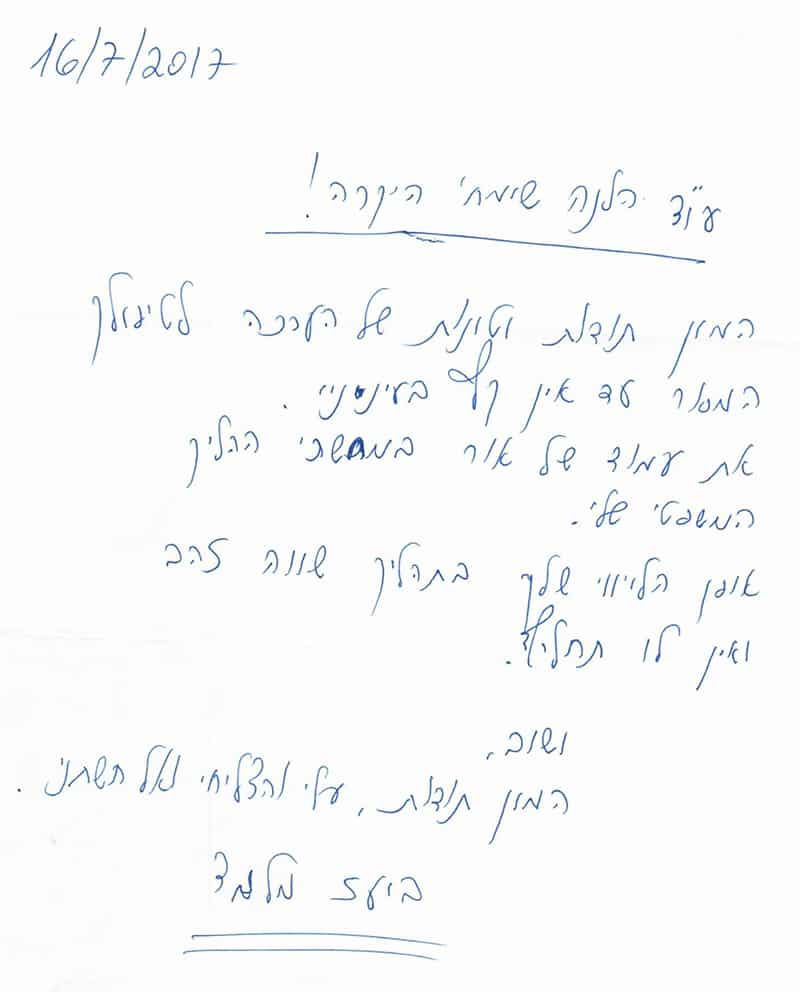 16/7/2017
עו"ד הלנה שימחי היקרה!
המון תודות וטונות של הערכה לטיפולך
המסור עד אין קץ בעינייני.
את עמוד של אור במחשכי ההליך
המשפטי שלי.
אופן הליווי שלך בתהליך שווה זהב
ואין לו תחליף.
ושוב,
המון תודות, עלי והצליחי ואל תשתני.
בועז מלמד